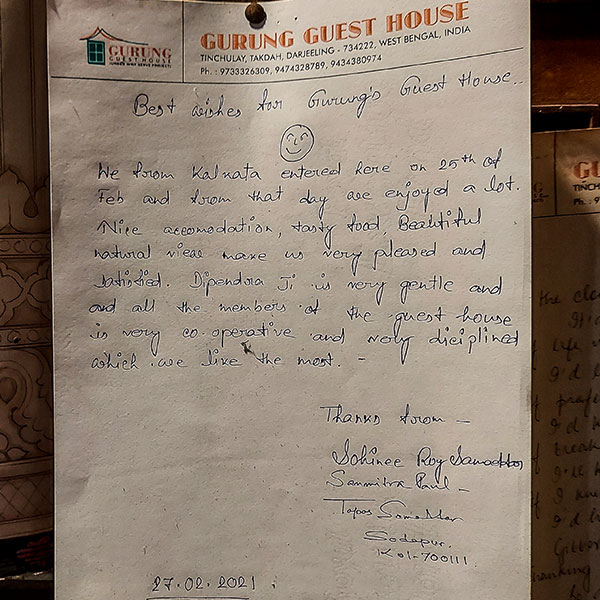 GURUNG
GUEST HOUSE
GURUNG GUEST HOUSE
TINCHULAY, TAKDAH, DARJEELING - 734222, WEST BENGAL, INDIA
Ph. : 9733326309, 9474328789, 9434380974
Best wishes for Gurung's Guest House..
We from Kalnata entered here on 25th of
Feb and from that day we enjoyed a lot.
Nice accomodation, tasty food, Beautiful
natural view make us very pleased and
satisfied. Dipendra Ji is very gentle and
and all the members of the guest house
is very co-operative and very diciplined
which we like the most. -
Thanks from -
Sohinee Roy Samaddar
Sanmitra Paul -
Tapas Samaddar
Sodapur.
Kol-700111.
27.02.2021.
GU
TINCH
Ph. : 9
the cle